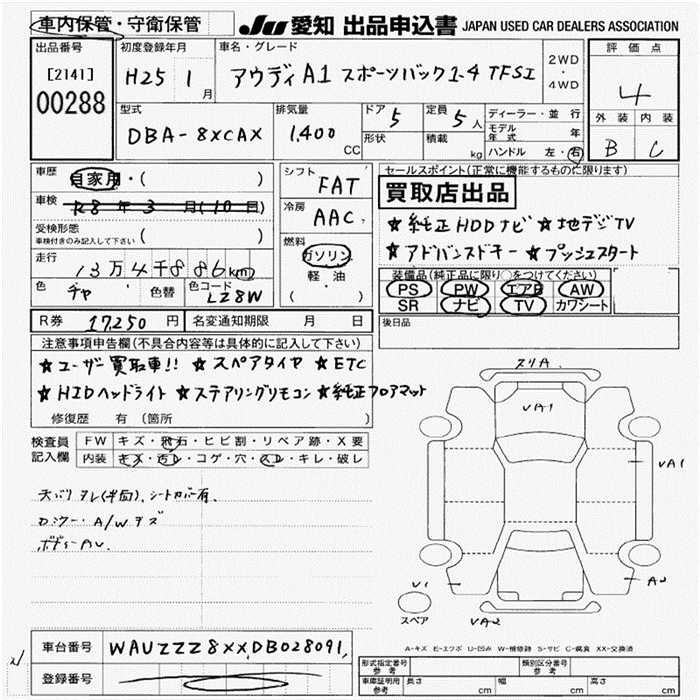 車内保管・守衛保管
JU 愛知 出品申込書 JAPAN USED CAR DEALERS ASSOCIATION
出品番号 [2141] 00288
初度登録年月 H25 1月
車名・グレード アウディA1 スポーツバック1-4 TFSI
2WD・4WD
評価点 4
外装 内装
B C
型式 DBA-8XCAX
排気量 1.400 CC
ドア 5
形状
定員 5人
積載 kg
ディーラー・並行
モデル年式 年
ハンドル 左・右
車歴 自家用・( )
車検 R8年3月(10日)
受検形態 ( )
車検付きのみ記入して下さい
走行 13万4千886km
色 チャ 色替 色コード LZ8W
シフト FAT
冷房 AAC
燃料 ガソリン
軽・油
( )
セールスポイント(正常に機能するものに限ります)
買取店出品
★純正HDDナビ ★地デジTV
★アドバンスドキー ★プッシュスタート
装備品(純正品に限り○をつけてください)
PS PW エアB AW
SR ナビ TV カワシート
後日品
R券 17,250円 名変通知期限 月 日
注意事項申告欄(不具合内容等は具体的に記入して下さい)
★ユーザー買取車!! ★スペアタイヤ ★ETC
★HIDヘッドライト ★ステアリングリモコン ★純正フロアマット
修復歴 有 (箇所 )
検査員記入欄
FW キズ・飛石・ヒビ割・リペア跡・X要
内装 キズ・汚レ・コゲ・穴・スレ・キレ・破レ
天バリタレ(半面)、シートカバー有、
Dミラー・A/Wキズ
ボディーAU.
スリA
UA1
UA1
U1
A2
UA2
スペア
A-キズ E-エクボ U-凹み W-補修跡 S-サビ C-腐食 XX-交換済
車台番号 WAUZZZ8XXDB028091
登録番号
形式指定番号 参考
類別区分番号
車庫証明用 参考 長さ cm 幅 cm 高さ cm